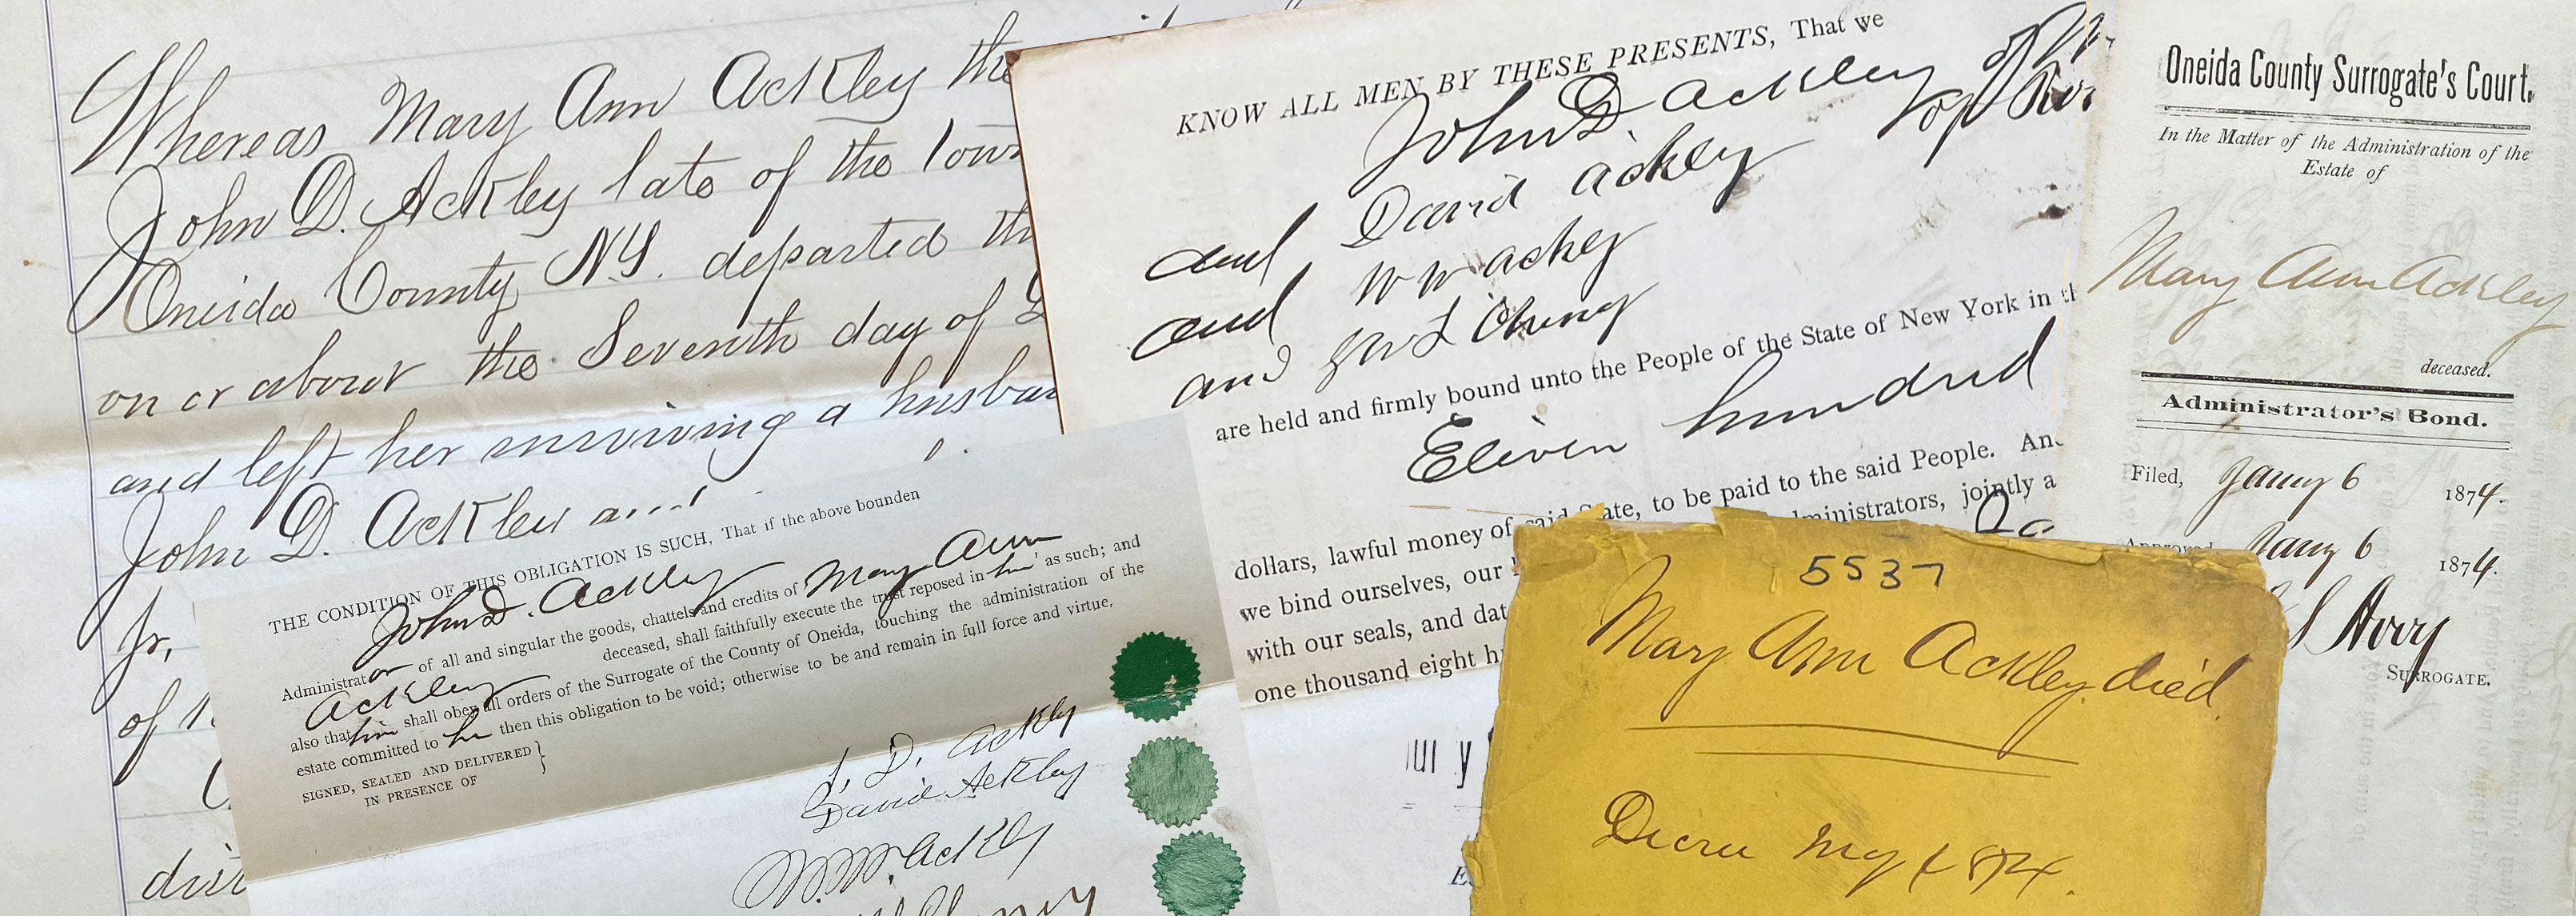 Whereas Mary Ann Ackley the
John D. Ackley late of the Town
Oneida County NY. departed th
on or about the Seventh day of
and left her surviving a husban
John D. Ackley and
Jr,
of
KNOW ALL MEN BY THESE PRESENTS, That we
John D Ackley of
and David Ackley of
and W W Ackley
and
are held and firmly bound unto the People of the State of New York in th
Eleven hundred
dollars, lawful money of said State, to be paid to the said People. And
we bind ourselves, our ministrators, jointly a
with our seals, and dat
one thousand eight h
Oneida County Surrogate's Court.
In the Matter of the Administration of the
Estate of
Mary Ann Ackley
deceased.
Administrator's Bond.
Filed, Jany 6 1874.
Approved Jany 6 1874.
SURROGATE.
THE CONDITION OF THIS OBLIGATION IS SUCH, That if the above bounden
John D. Ackley
Administrator of all and singular the goods, chattels and credits of Mary Ann
Ackley deceased, shall faithfully execute the trust reposed in him as such; and
also that him shall obey all orders of the Surrogate of the County of Oneida, touching the administration of the
estate committed to him then this obligation to be void; otherwise to be and remain in full force and virtue.
SIGNED, SEALED AND DELIVERED
IN PRESENCE OF
J. D. Ackley
David Ackley
W. W. Ackley
5537
Mary Ann Ackley died